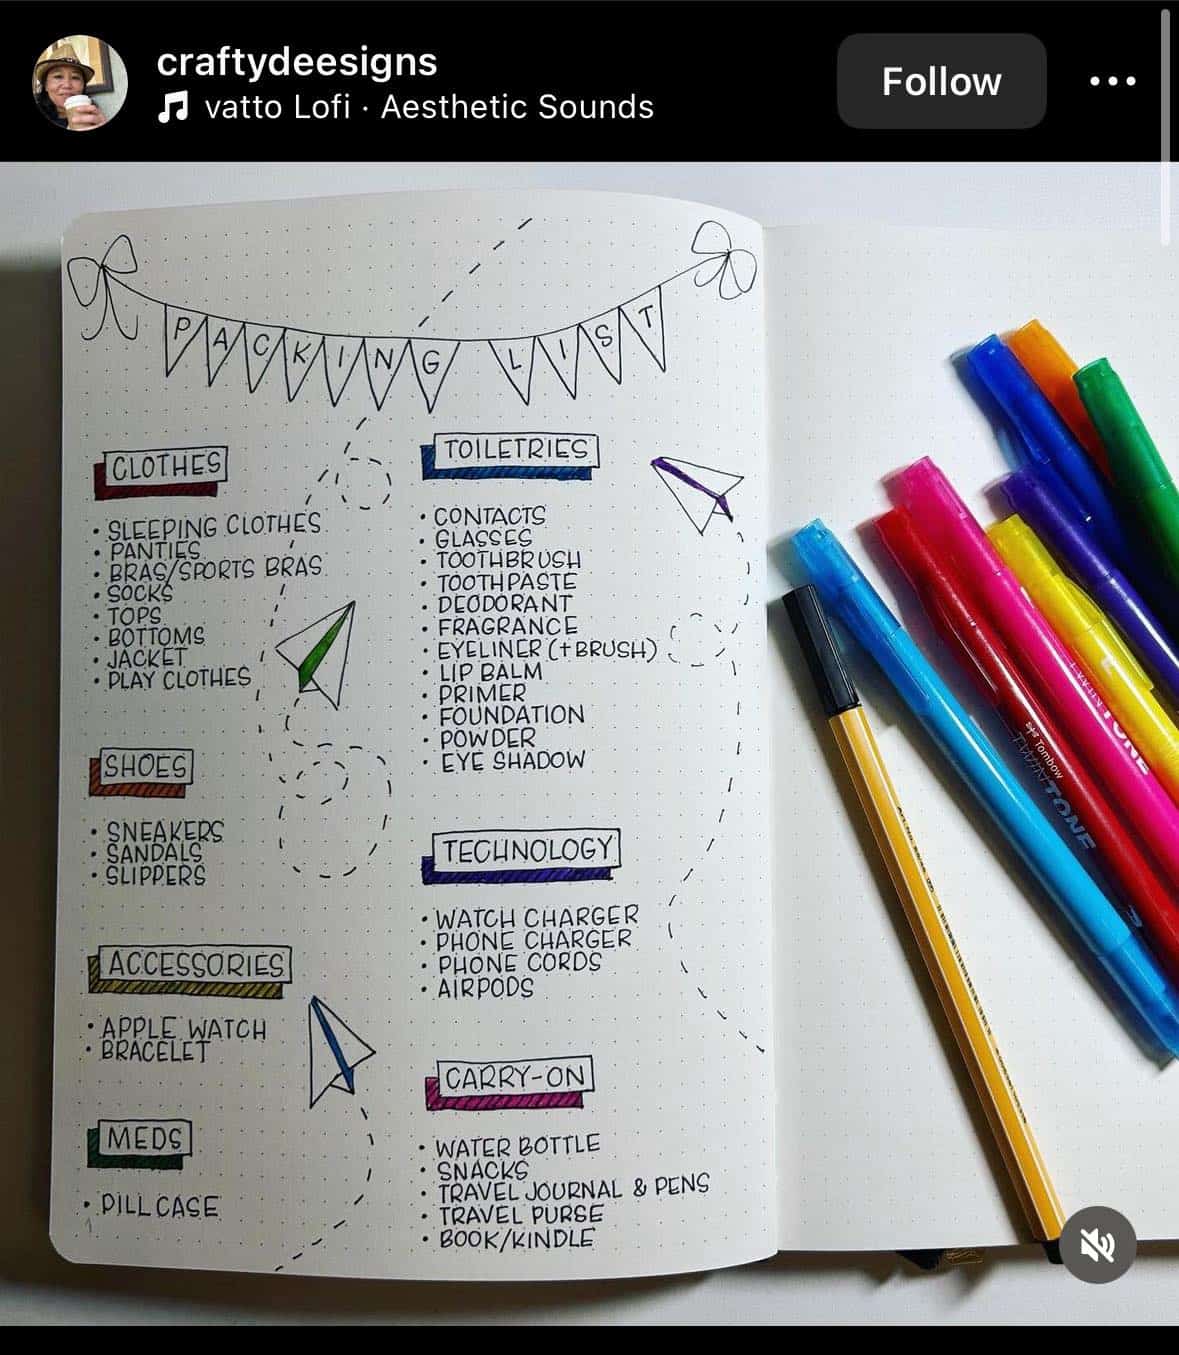 craftydeesigns
vatto Lofi · Aesthetic Sounds
Follow
PACKING LIST
CLOTHES
• SLEEPING CLOTHES
• PANTIES
• BRAS/SPORTS BRAS
• SOCKS
• TOPS
• BOTTOMS
• JACKET
• PLAY CLOTHES
SHOES
• SNEAKERS
• SANDALS
• SLIPPERS
ACCESSORIES
• APPLE WATCH
• BRACELET
MEDS
• PILL CASE
TOILETRIES
• CONTACTS
• GLASSES
• TOOTHBRUSH
• TOOTHPASTE
• DEODORANT
• FRAGRANCE
• EYELINER (+BRUSH)
• LIP BALM
• PRIMER
• FOUNDATION
• POWDER
• EYE SHADOW
TECHNOLOGY
• WATCH CHARGER
• PHONE CHARGER
• PHONE CORDS
• AIRPODS
CARRY-ON
• WATER BOTTLE
• SNACKS
• TRAVEL JOURNAL & PENS
• TRAVEL PURSE
• BOOK/KINDLE
Tombow
TWINTONE